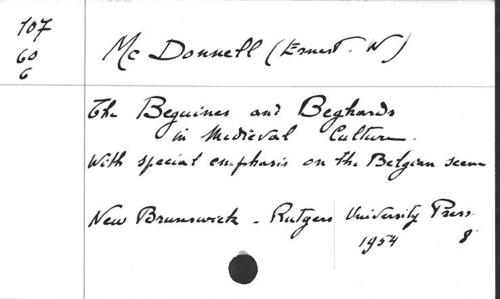 107
60
6
Mc Donnell (Ernest. W)
The Beguines and Beghards
in Medieval Culture.
With special emphasis on the Belgian scene
New Brunswick - Rutgers University Press.
1954 8°